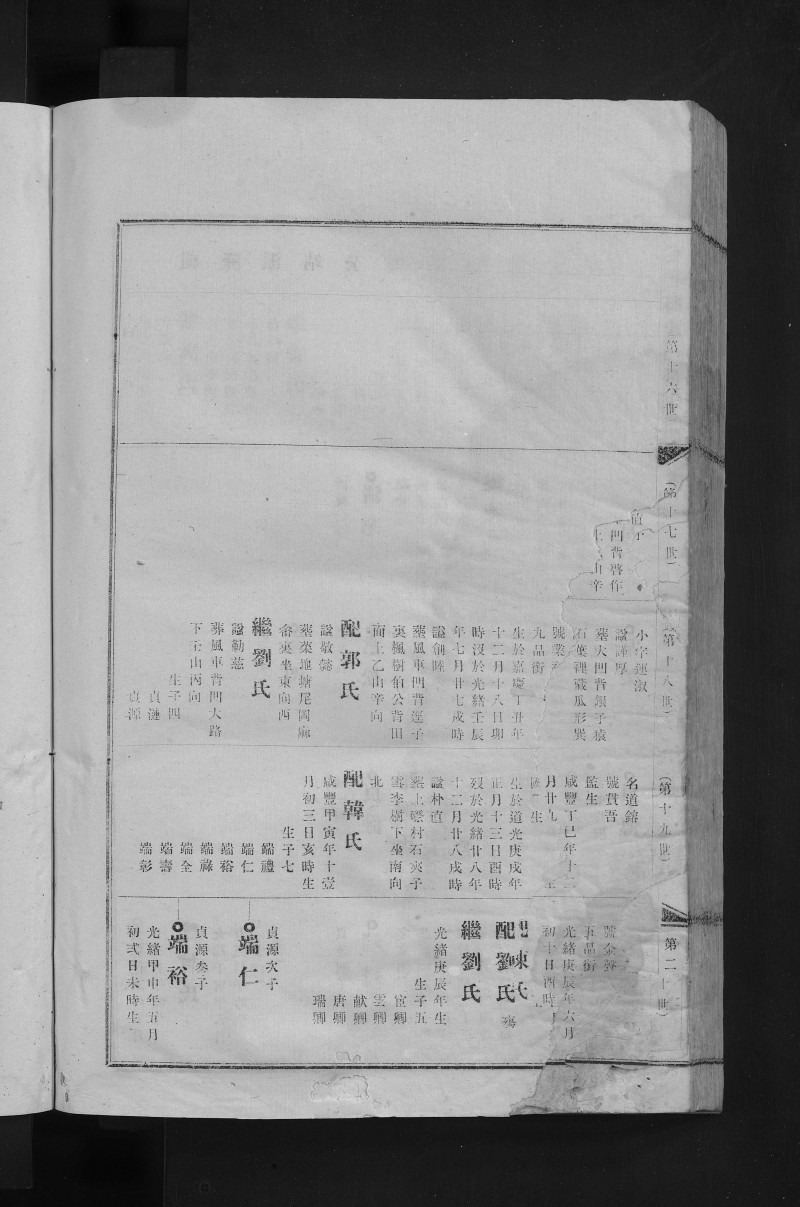 第十六世
(第十七世)
凹背啓作
山辛
(第十八世)
小字運淑
諡謹厚
葬大凹背銀子壕
石葉裡藏瓜形巽
九品銜
生於嘉慶丁丑年
十二月十八日卯
時沒於光緒壬辰
年七月廿七戌時
諡剛睦
葬風車凹背逕子
裏楓樹伯公背田
面上乙山辛向
配郭氏
諡敬懿
葬菜地塘尾岡麻
畲裏坐東向西
繼劉氏
諡勤慈
葬風車背凹大路
下壬山丙向
生子四
貞漣
貞源
(第十九世)
名道鎔
號貫吾
監生
咸豐丁巳年十二
月廿九
生於道光庚戌年
正月十三日酉時
歿於光緒廿八年
十二月廿八戌時
諡朴直
葬上磜村石夾子
雲李樹下坐南向
北
配韓氏
咸豐甲寅年十壹
月初三日亥時生
生子七
端禮
端仁
端裕
端祿
端全
端壽
端彰
第二十世)
五品銜
光緒庚辰年六月
初十日酉時
陳氏
配劉氏
繼劉氏
光緒庚辰年生
生子五
宸卿
雲卿
猷卿
唐卿
瑞卿
貞源次子
端仁
貞源叁子
端裕
光緒甲申年五月
初弍日未時生